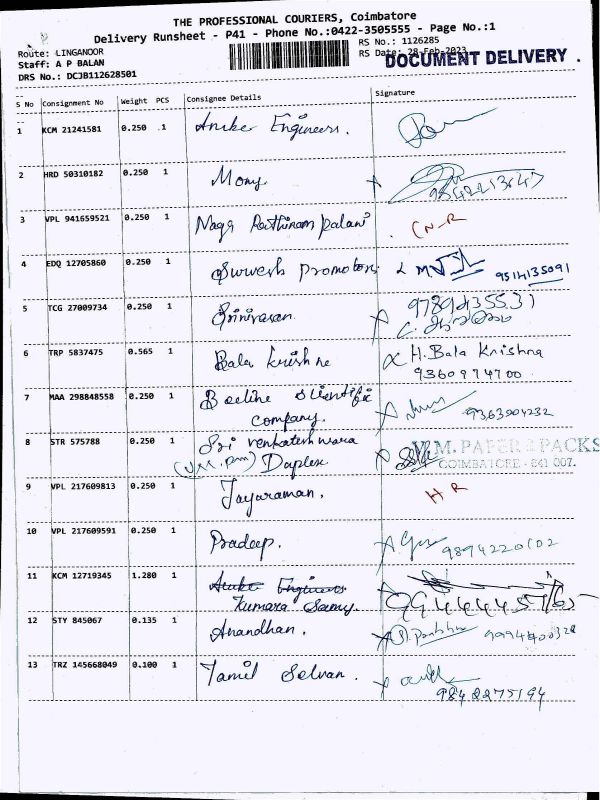 THE PROFESSIONAL COURIERS, Coimbatore
Delivery Runsheet - P41 - Phone No.:0422-3505555 - Page No.:1
Route: LINGANOOR
RS No.: 1126285
Staff: A P BALAN
RS Date: 28-Feb-2023
DOCUMENT DELIVERY .
DRS No.: DCJB112628501
S No Consignment No Weight PCS Consignee Details Signature
1 KCM 21241581 0.250 1 Engineers.
2 HRD 50310182 0.250 1 Mony
3 VPL 941659521 0.250 1 Naga Rathinam palani C N-R
4 EDQ 12705860 0.250 1 promotors 9514135091
5 TCG 27009734 0.250 1 Srinivasan
6 TRP 5837475 0.565 1 Bala Krishna H. Bala Krishna
7 MAA 298848558 0.250 1 Beeline scientific
company. 9363904232
8 STR 575788 0.250 1 Sri venkateshwara V.M. PAPER & PACKS
Duplex COIMBATORE - 641 007.
9 VPL 217609813 0.250 1 Jayaraman. H R
10 VPL 217609591 0.250 1 Pradeep. 9894220102
11 KCM 12719345 1.280 1 Engineers
Kumara Samy.
12 STY 845067 0.135 1 Anandhan.
13 TRZ 145668049 0.100 1 Tamil Selvan.
9842275194